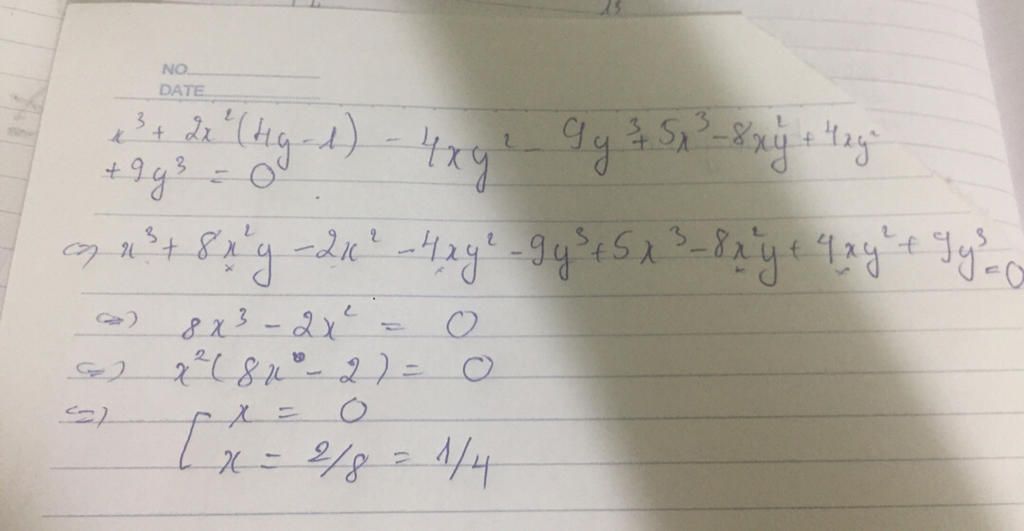 NO
DATE
x³ + 2x²(4y - 1) - 4xy² - 9y³ + 5x³ - 8xy² + 4xy²
+ 9y³ = 0
<=> x³ + 8x²y - 2x² - 4xy² - 9y³ + 5x³ - 8x²y + 4xy² + 9y³ = 0
<=> 8x³ - 2x² = 0
<=> x²(8x - 2) = 0
<=> [ x = 0
x = 2/8 = 1/4